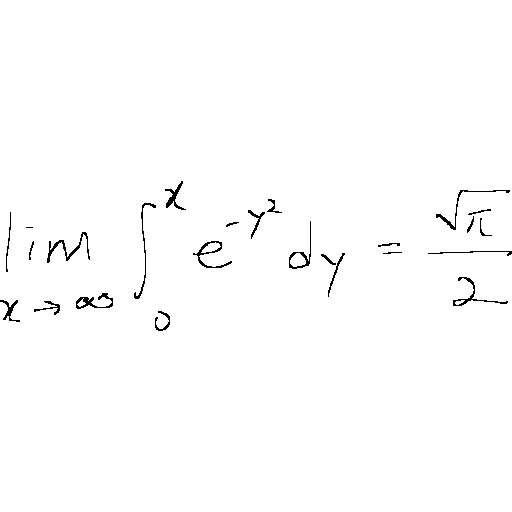 \lim_{x \to \infty} \int_{0}^{x} e^{-y^{2}} dy = \frac{\sqrt{\pi}}{2}